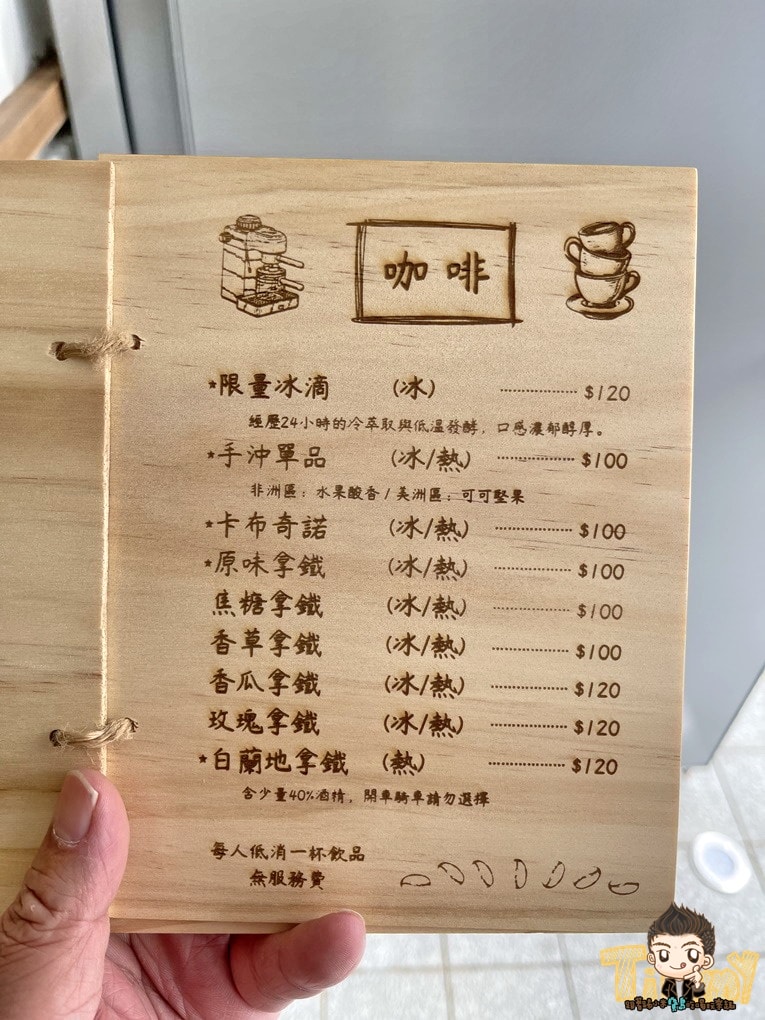 咖啡
*限量冰滴 (冰) ............... $120
經歷24小時的冷萃取與低溫發酵，口感濃郁醇厚。
*手沖單品 (冰/熱) ............... $100
非洲區：水果酸香/美洲區：可可堅果
*卡布奇諾 (冰/熱) ............... $100
*原味拿鐵 (冰/熱) ............... $100
焦糖拿鐵 (冰/熱) ............... $100
香草拿鐵 (冰/熱) ............... $100
香瓜拿鐵 (冰/熱) ............... $120
玫瑰拿鐵 (冰/熱) ............... $120
*白蘭地拿鐵 (熱) ............... $120
含少量40%酒精，開車騎車請勿選擇
每人低消一杯飲品
無服務費